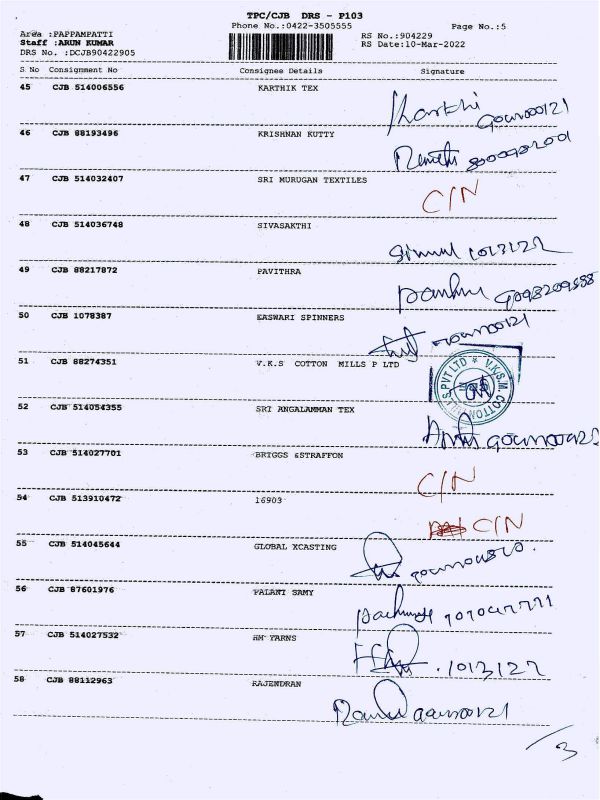 TPC/CJB DRS - P103
Phone No.:0422-3505555
Page No.:5
Area :PAPPAMPATTI
RS No.:904229
Staff :ARUN KUMAR
RS Date:10-Mar-2022
DRS No. :DCJB90422905
S No Consignment No Consignee Details Signature
45 CJB 514006556 KARTHIK TEX
46 CJB 88193496 KRISHNAN KUTTY
47 CJB 514032407 SRI MURUGAN TEXTILES
C/N
48 CJB 514036748 SIVASAKTHI
10/3/22
49 CJB 88217872 PAVITHRA
50 CJB 1078387 EASWARI SPINNERS
51 CJB 88274351 V.K.S COTTON MILLS P LTD
52 CJB 514054355 SRI ANGALAMMAN TEX
53 CJB 514027701 BRIGGS &STRAFFON
C/N
54 CJB 513910472 16903
C/N
55 CJB 514045644 GLOBAL XCASTING
56 CJB 87601976 PALANI SAMY
57 CJB 514027532 HM YARNS
10/3/22
58 CJB 88112963 RAJENDRAN
3